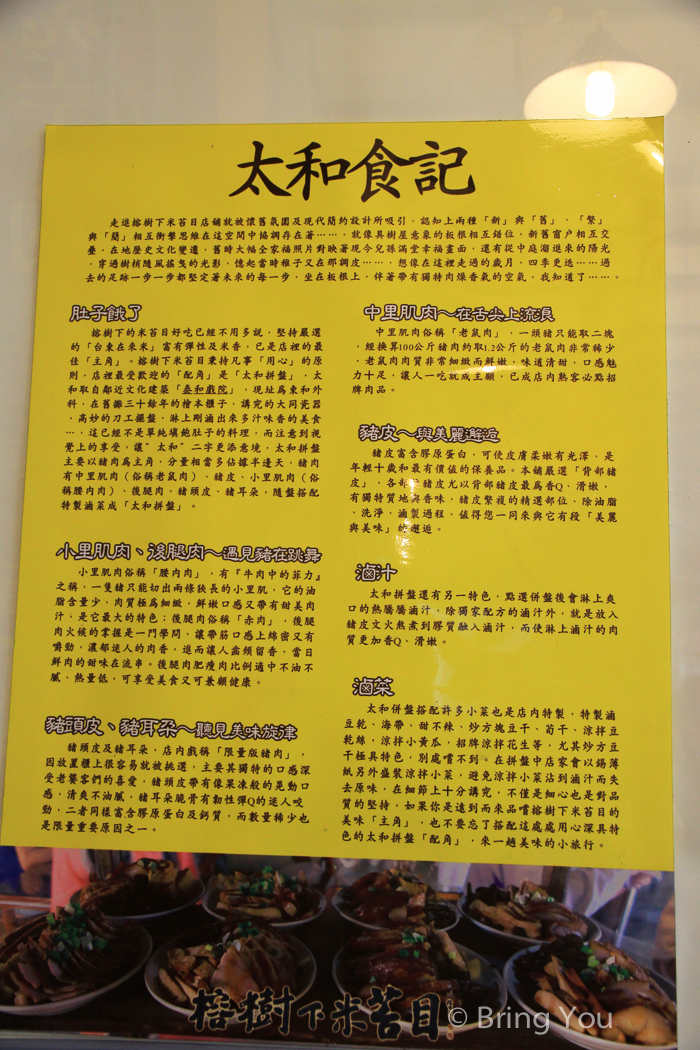 太和食記
走進榕樹下米苔目店鋪就被懷舊氛圍及現代簡約設計所吸引，認知上兩種「新」與「舊」，「繁」
與「簡」相互衝擊思維在這空間中協調存在著……，就像具樹屋意象的板根相互錯位，新舊窗戶相互交
疊，在地歷史文化變遷，舊時大幅全家福照片對映著現今兒孫滿堂幸福畫面，還有從中庭溜進來的陽光
，穿過樹梢隨風搖曳的光影，憶起當時稚子又在那調皮……，想像在這裡走過的歲月，四季更迭……過
去的足跡一步一步都堅定著未來的每一步，坐在板根上，伴著帶有獨特肉燥香氣的空氣，我知道了……。
肚子餓了
榕樹下的米苔目好吃已經不用多說，堅持嚴選
的「台東在來米」富有彈性及米香，已是店裡的最
佳「主角」。榕樹下米苔目秉持凡事「用心」的原
則，店裡最受歡迎的「配角」是「太和拼盤」，太
和取自鄰近文化建築「泰和戲院」，現址為東和外
科，在舊攤三十餘年的檜木櫃子，講究的大同瓷器
，高妙的刀工擺盤，淋上剛滷出來多汁味香的美食
…，這已經不是單純填飽肚子的料理，而注意到視
覺上的享受，讓"太和"二字更添意境，太和拼盤
主要以豬肉為主角，分量相當多佔據半邊天，豬肉
有中里肌肉（俗稱老鼠肉）、豬皮、小里肌肉（俗
俗稱腰內肉）、後腿肉、豬頭皮、豬耳朵，隨盤搭配
特製滷菜成「太和拼盤」。
小里肌肉、後腿肉～遇見豬在跳舞
小里肌肉俗稱「腰內肉」，有『牛肉中的菲力』
之稱，一隻豬只能切出兩條狹長的小里肌，它的油
脂含量少，肉質極為細緻，鮮嫩口感又帶有甜美肉
汁，是它最大的特色；後腿肉俗稱「赤肉」，後腿
肉火候的掌握是一門學問，讓帶筋口感上綿密又有
嚼勁，濃郁迷人的肉香，進而讓人齒頰留香，當日
鮮肉的甜味在流串。後腿肉肥瘦肉比例適中不油不
膩，熱量低，可享受美食又可兼顧健康。
豬頭皮、豬耳朵～聽見美味旋律
豬頭皮及豬耳朵，店內戲稱「限量版豬肉」，
因放置櫃上很容易就被挑選，主要其獨特的口感深
受老饕客們的喜愛，豬頭皮帶有像果凍般的晃動口
感，清爽不油膩，豬耳朵脆骨有韌性彈Q的迷人咬
勁，二者同樣富含膠原蛋白及鈣質，而數量稀少也
是限量重要原因之一。
中里肌肉～在舌尖上流浪
中里肌肉俗稱「老鼠肉」，一頭豬只能取二塊
，經換算100公斤豬肉約取1.2公斤的老鼠肉非常稀少
，老鼠肉肉質非常細緻而鮮嫩，味道清甜，口感魅
力十足，讓人一吃就成主顧，已成店內熟客必點招
牌肉品。
豬皮～與美麗邂逅
豬皮富含膠原蛋白，可使皮膚柔嫩有光澤，是
年輕十歲和最有價值的保養品。本鋪嚴選「背部豬
皮」，各部位豬皮尤以背部豬皮最為香Q、滑嫩，
有獨特質地與香味，豬皮繁複的精選部位、除油脂
、洗淨、滷製過程，值得您一同來與它有段「美麗
與美味」的邂逅。
滷汁
太和拼盤還有另一特色，點選併盤後會淋上爽
口的熱騰騰滷汁，除獨家配方的滷汁外，就是放入
豬皮文火熬煮到膠質融入滷汁，而使淋上滷汁的肉
質更加香Q、滑嫩。
滷菜
太和併盤搭配許多小菜也是店內特製，特製滷
豆乾、海帶、甜不辣、炒方塊豆干、荀干、涼拌豆
乾絲，涼拌小黃瓜，招牌涼拌花生等，尤其炒方豆
干極具特色，別處嚐不到。在拼盤中店家會以錫薄
紙另外盛裝涼拌小菜，避免涼拌小菜沾到滷汁而失
去原味，在細節上十分講究，不僅是細心也是對品
質的堅持，如果你是遠到而來品嚐榕樹下米苔目的
美味「主角」，也不要忘了搭配這處處用心深具特
色的太和拼盤「配角」，來一趟美味的小旅行。
榕樹下米苔目
© Bring You